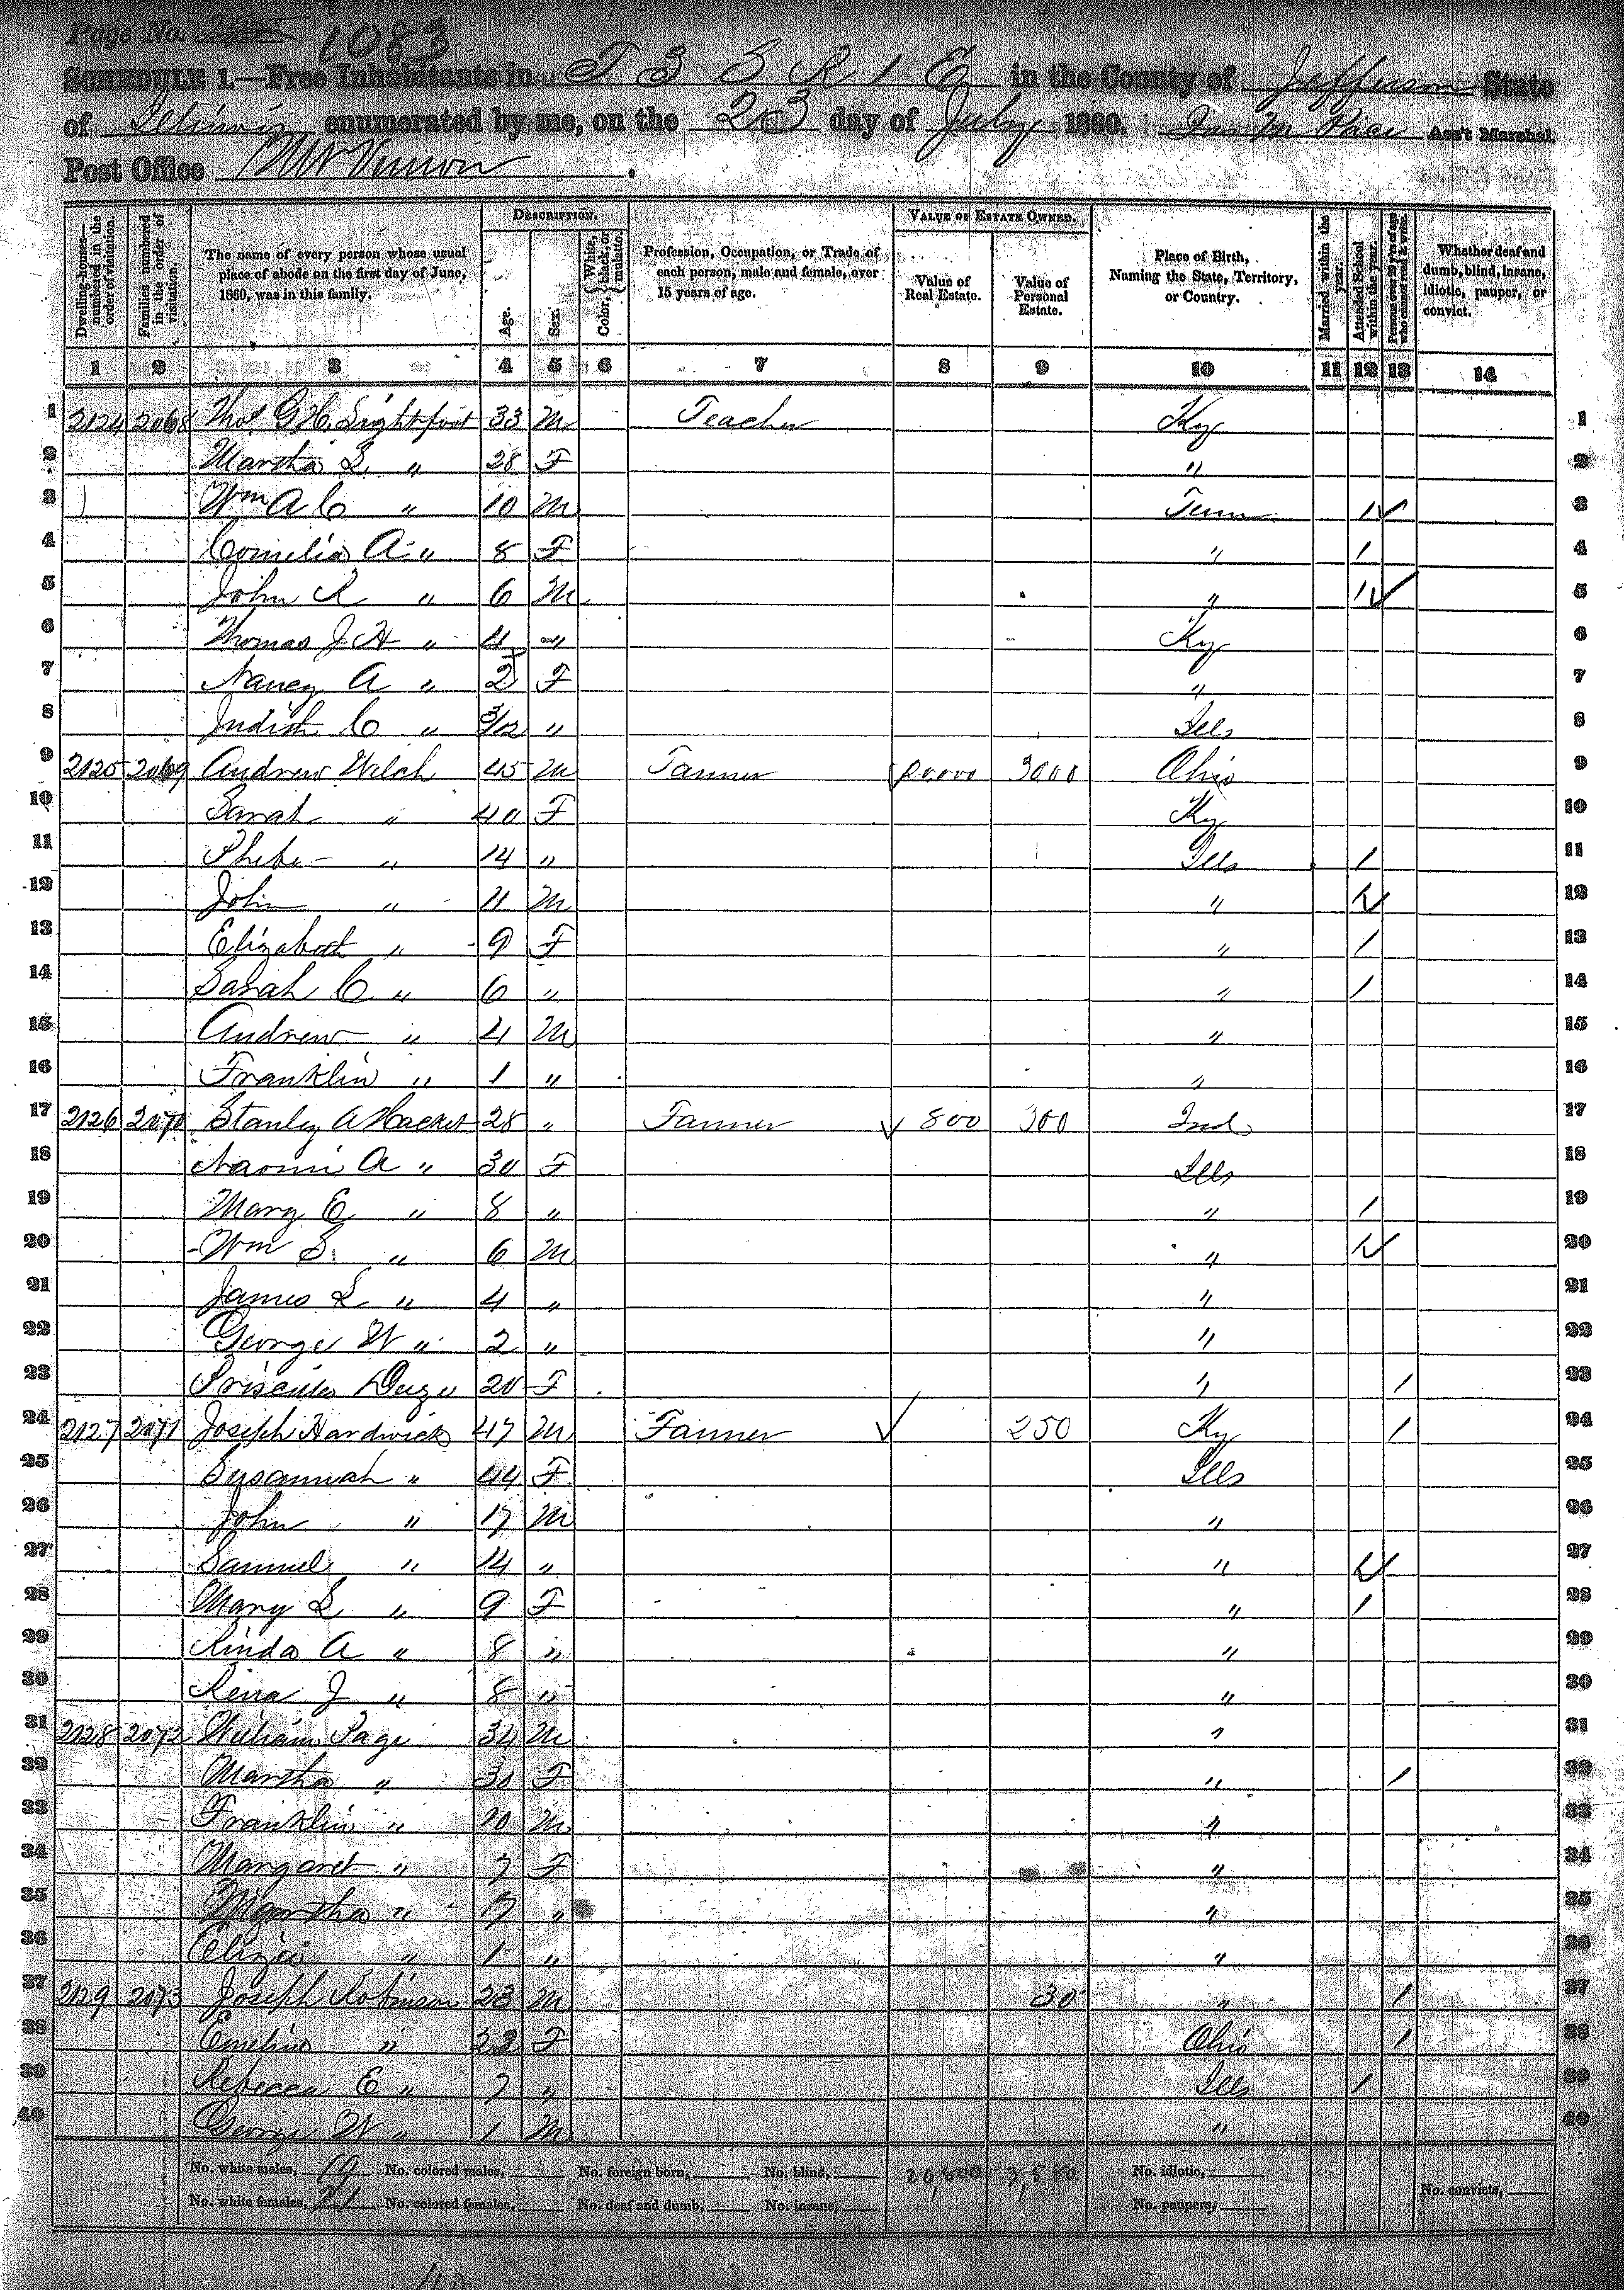 Page No. 1083
SCHEDULE 1.—Free Inhabitants in T 3 S R 1 E in the County of Jefferson State
of Illinois enumerated by me, on the 23 day of July 1860. Jas M Pace Ass't Marshal.
Post Office Mt Vernon.
DESCRIPTION. VALUE OF ESTATE OWNED.
Dwelling-houses—numbered in the order of visitation. Families numbered in the order of visitation. The name of every person whose usual place of abode on the first day of June, 1860, was in this family. Age. Sex. Color, {White, black, or mulatto. Profession, Occupation, or Trade of each person, male and female, over 15 years of age. Value of Real Estate. Value of Personal Estate. Place of Birth, Naming the State, Territory, or Country. Married within the year. Attended School within the year. Persons over 20 y'rs of age who cannot read & write. Whether deaf and dumb, blind, insane, idiotic, pauper, or convict.
1 2 3 4 5 6 7 8 9 10 11 12 13 14
1 2124 2068 Thos G H Lightfoot 33 M Teacher Ky 1
2 Martha L " 28 F " 2
3 Wm A C " 10 M Tenn 1 ✓ 3
4 Cornelia A " 8 F " 1 4
5 John R " 6 M " 1 ✓ 5
6 Thomas J H " 4 " Ky 6
7 Nancy A " 2 F " 7
8 Judith C " 3/12 " Ills 8
9 2125 2069 Andrew Welch 45 M Farmer 20000 3000 Ohio 9
10 Sarah " 40 F Ky 10
11 Phebe " 14 " Ills 1 11
12 John " 11 M " 1 ✓ 12
13 Elizabeth " 9 F " 1 13
14 Sarah C " 6 " " 1 14
15 Andrew " 4 M " 15
16 Franklin " 1 " " 16
17 2126 2070 Stanley A 28 " Farmer ✓ 800 300 Ind 17
18 Naomi A " 30 F Ills 18
19 Mary E " 8 " " 1 19
20 Wm S. " 6 M " 1 ✓ 20
21 James L " 4 " " 21
22 George W " 2 " " 22
23 Priscilla 20 F " 1 23
24 2127 2071 Joseph Hardwick 47 M Farmer ✓ 250 Ky 1 24
25 Susannah " 44 F Ills 25
26 John " 17 M " 26
27 Samuel " 14 " " 1 ✓ 27
28 Mary L " 9 F " 1 28
29 Rinda A " 8 " " 29
30 Rena J " 8 " " 30
31 2128 2072 William Page 34 M " 31
32 Martha " 30 F " 1 32
33 Franklin " 10 M " 33
34 Margaret " 7 F " 34
35 Martha " 7 " " 35
36 Eliza " 1 " " 36
37 2129 2073 Joseph Robinson 23 M 30 " 1 37
38 Emeline " 22 F Ohio 1 38
39 Rebecca E " 7 " Ills 1 39
40 George W " 1 M " 40
No. white males, 19 No. colored males, No. foreign born, No. blind, 20,800 3,580 No. idiotic,
No. white females, 21 No. colored females, No. deaf and dumb, No. insane, No. paupers, No. convicts,